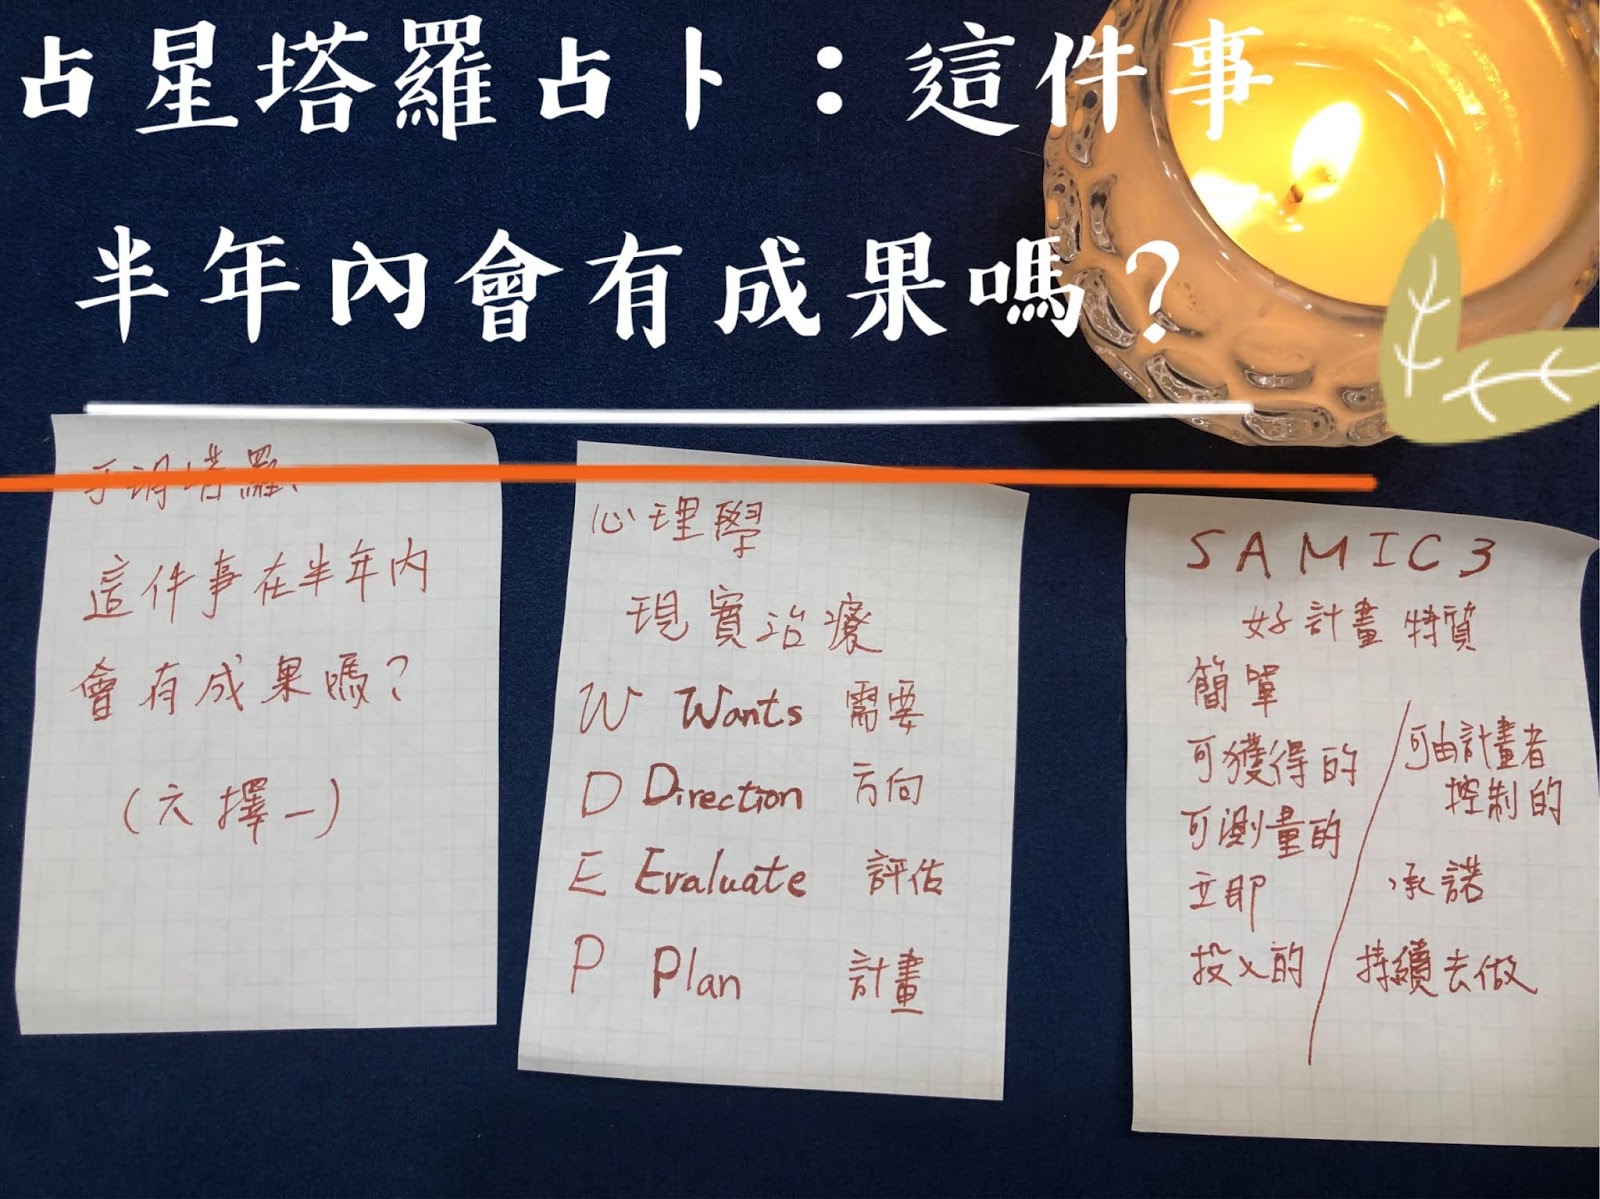 占星塔羅占卜：這件事
半年內會有成果嗎？
塔羅
這件事在半年內
會有成果嗎？
(六擇一)
心理學
現實治療
W Wants 需要
D Direction 方向
E Evaluate 評估
P Plan 計畫
SAMIC3
好計畫 特質
簡單
可獲得的
可測量的
立即
投入的
可由計畫者
控制的
承諾
持續去做